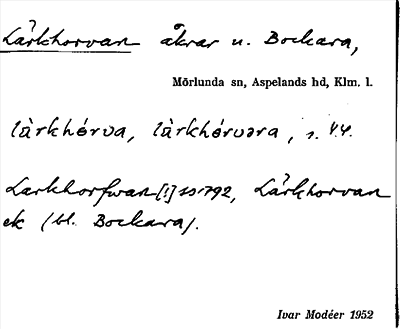 Lärkhorvan åkrar u. Bockara,
Mörlunda sn, Aspelands hd, Klm. l.
lärkhórva, lärkhórvəra, s. 44.
Larkhorfwan [!] SS 1792, Lärkhorvan
ek (bl. Bockara).
Ivar Modéer 1952